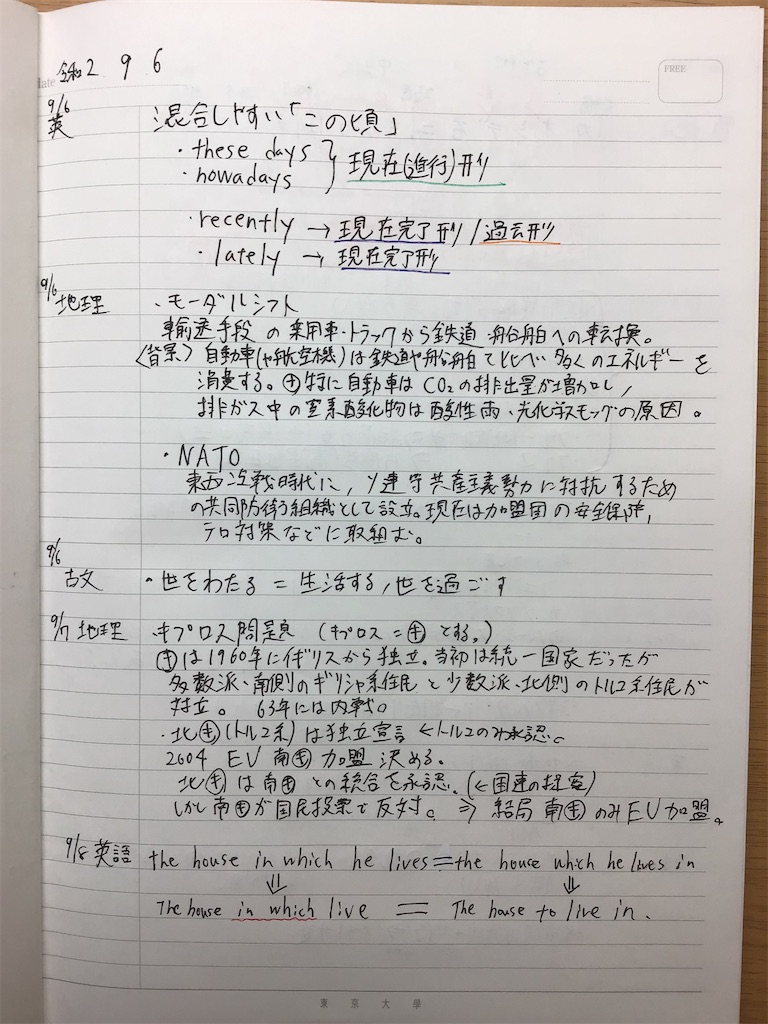 date 令和2 9 6
FREE
9/6 英 混合しやすい「この頃」
・these days
・nowadays } 現在(進行)形
・recently → 現在完了形 / 過去形
・lately → 現在完了形
9/6 地理 ・モーダルシフト
輸送手段の乗用車・トラックから鉄道・船舶への転換。
〈背景〉自動車(や航空機)は鉄道や船舶と比べ多くのエネルギーを
消費する。㊉特に自動車はCO2の排出量が増加し,
排ガス中の窒素酸化物は酸性雨・光化学スモッグの原因。
・NATO
東西冷戦時代に,ソ連等共産主義勢力に対抗するため
の共同防衛組織として設立。現在は加盟国の安全保障,
テロ対策などに取組む。
9/6 古文 ・世をわたる = 生活する,世を過ごす
9/7 地理 ・キプロス問題 (キプロス=㋖とする。)
㋖は1960年にイギリスから独立。当初は統一国家だったが
多数派・南側のギリシャ系住民と少数派・北側のトルコ系住民が
対立。 63年には内戦。
・北㋖(トルコ系)は独立宣言 ←トルコのみ承認。
2004 EU 南㋖ 加盟 決める。
北㋖は南㋖との統合を承認。(←国連の提案)
しかし南㋖が国民投票で反対。 ⇒ 結局 南㋖のみEU加盟。
9/8 英語 the house in which he lives = the house which he lives in
⇓ ⇓
The house in which live = The house to live in.
東京大學